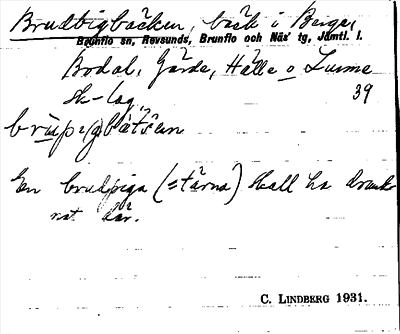 Brudbigbäcken, bäck i Berge,
Brunflo sn, Revsunds, Brunflo och Näs' tg, Jämtl. l.
Bodal, Gärde, Hälle o Lunne
sk-lag. 39
En brudpiga (=tärna) skall ha drunk-
nat där.
C. LINDBERG 1931.